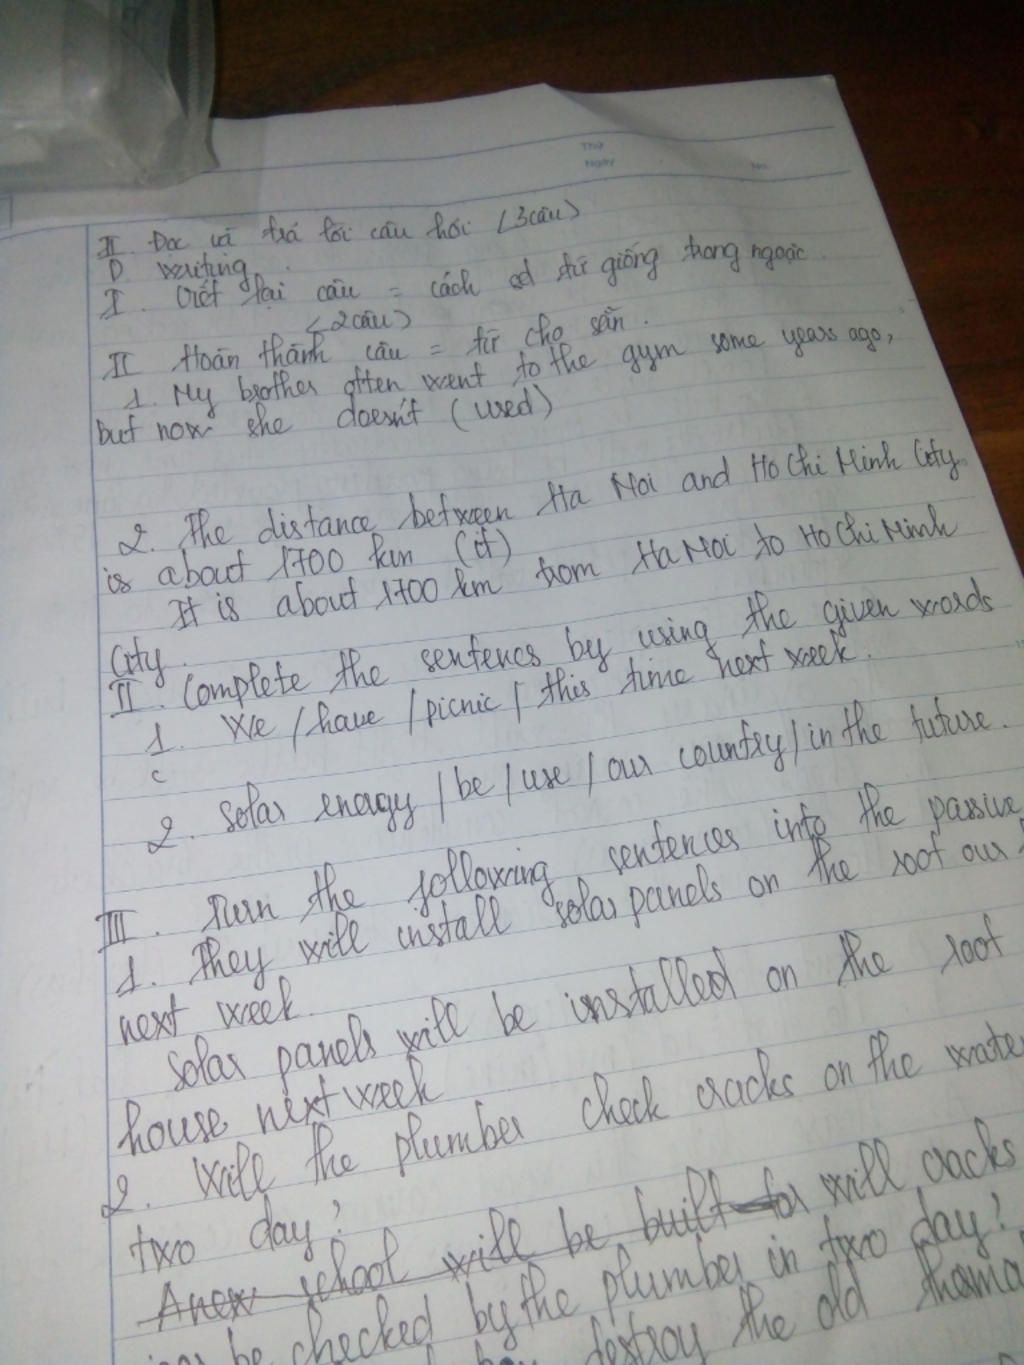 Thứ
Ngày No.
II. Đọc và trả lời câu hỏi (3 câu)
D. writing
I. Viết lại câu = cách sd từ giống trong ngoặc.
(2 câu)
II Hoàn thành câu = từ cho sẵn.
1. My brother often went to the gym some years ago,
but now she doesn't (used)
2. The distance between Ha Noi and Ho Chi Minh City
is about 1700 km (it)
It is about 1700 km from Ha Noi to Ho Chi Minh
City.
II. Complete the sentencs by using the given words
1. We / have / picnic / this time next week.
c
2. Solar energy / be / use / our country / in the future.
III. Turn the following sentences into the passive
1. They will install solar panels on the root our
next week.
Solar panels will be installed on the root
house next week
2. Will the plumber check cracks on the wate
two day?
A new school will be built for will cracks
be checked by the plumber in two day?
destroy the old